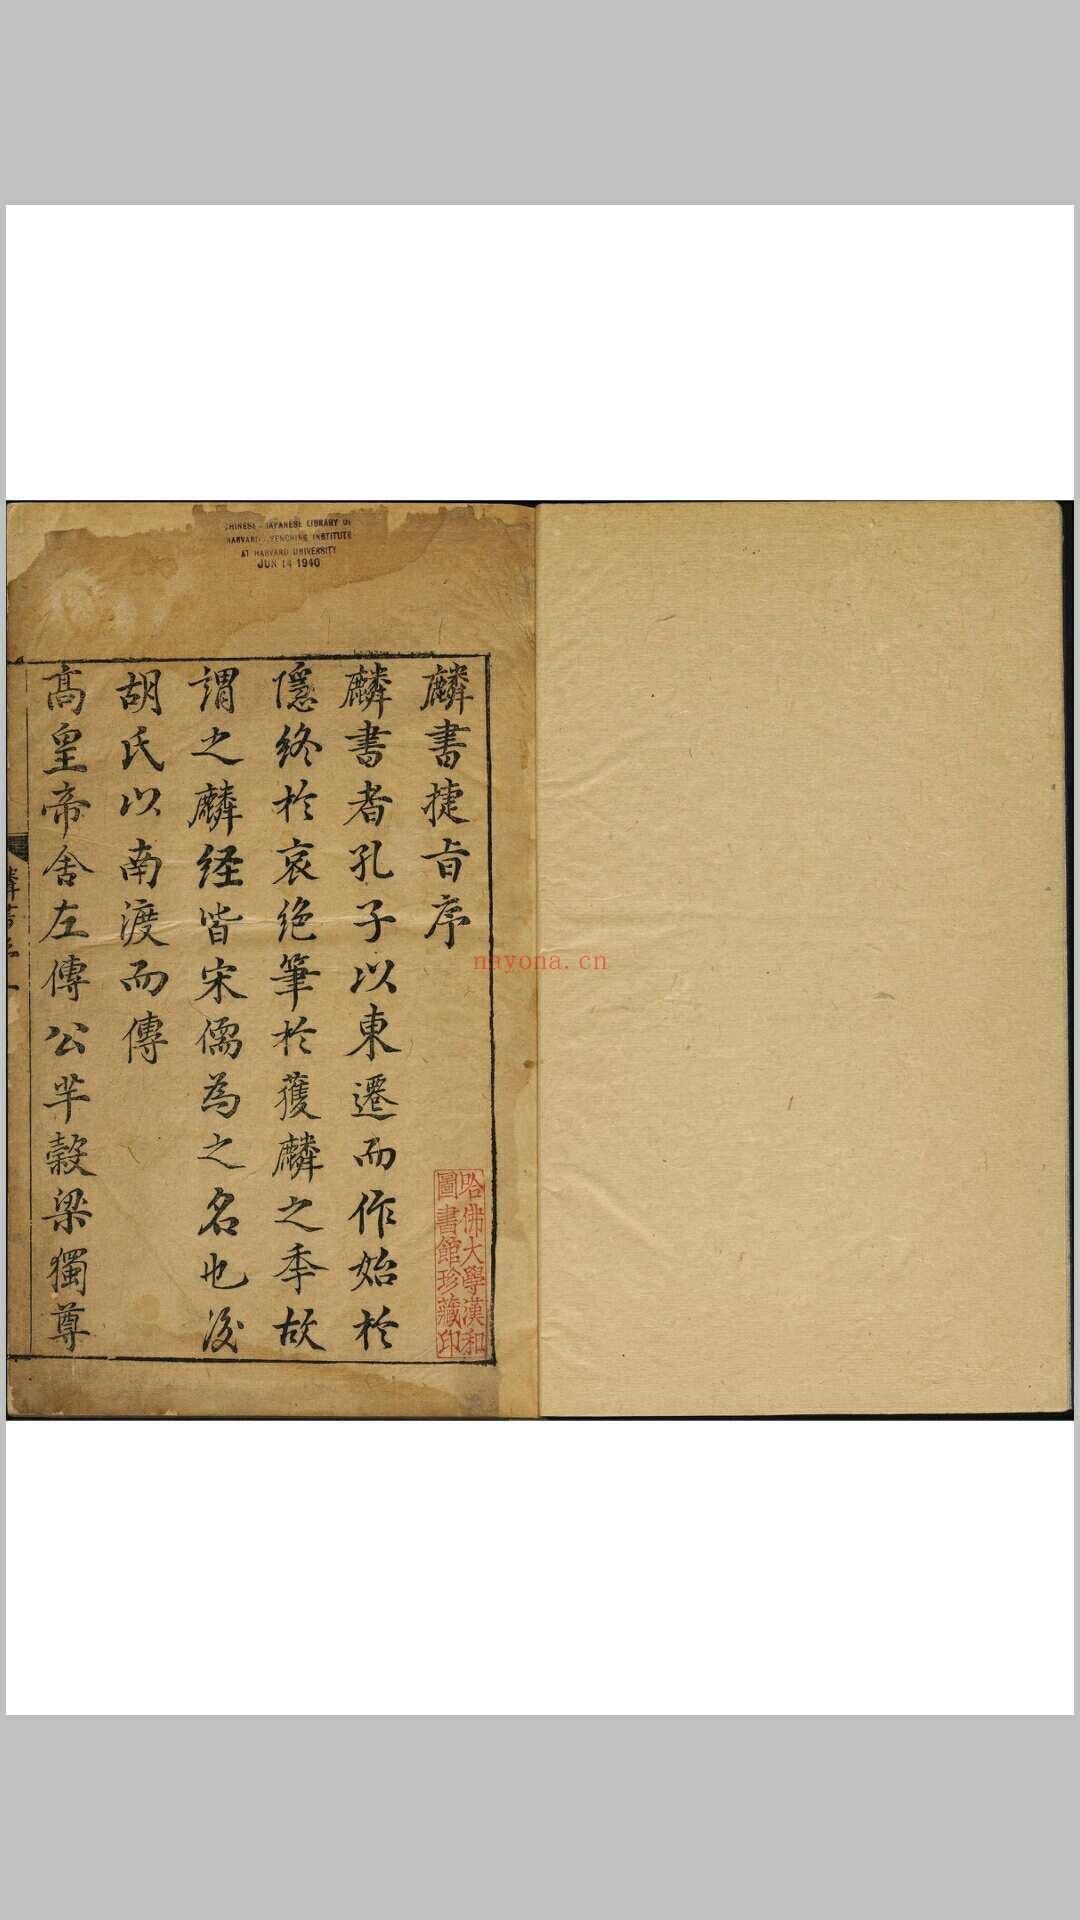 CHINESE-JAPANESE LIBRARY OF
HARVARD-YENCHING INSTITUTE
AT HARVARD UNIVERSITY
JUN 14 1940
麟書捷旨序
麟書者孔子以東遷而作始於
隱終於哀絶筆於獲麟之季故
謂之麟経皆宋儒為之名也後
胡氏以南渡而傳
髙皇帝舍左傳公羊榖梁獨尊
哈佛大學漢和
圖書館珍藏印
nayona.cn